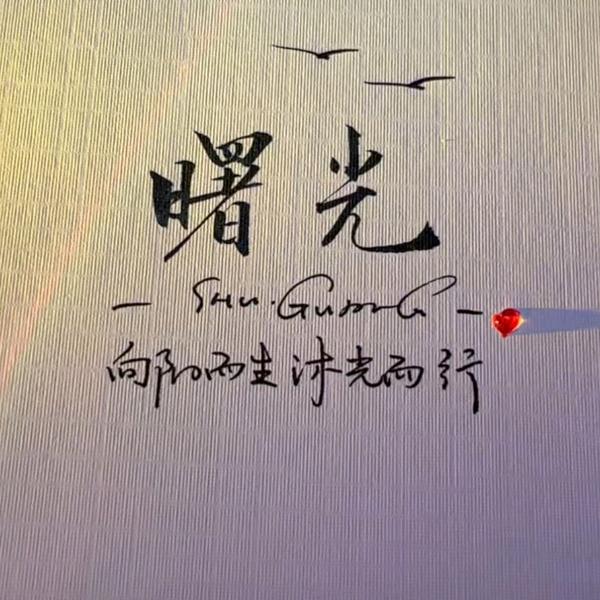 曙光
— Shu.Guang —
向阳而生 沐光而行